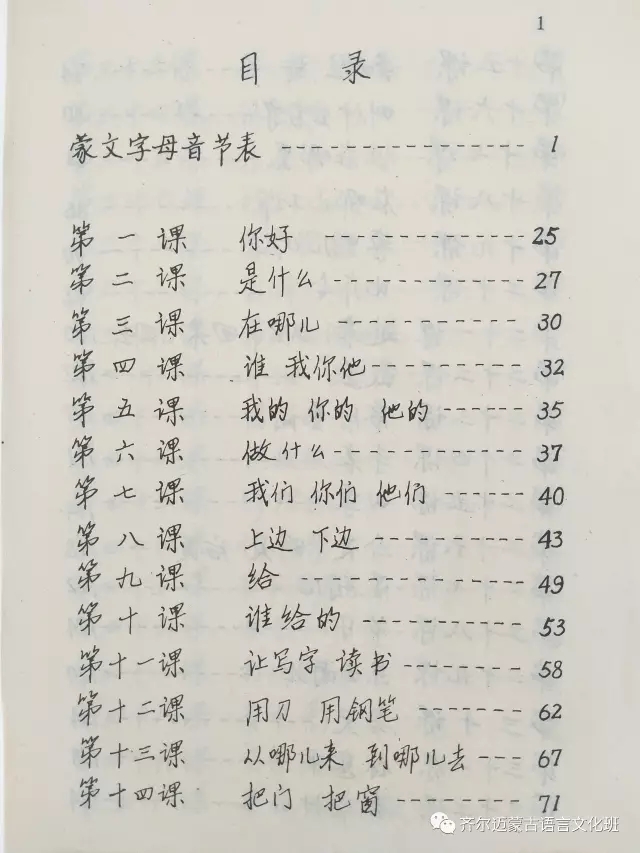 1
目 录
蒙文字母音节表 ---------------- 1
第一课 你好 ------------- 25
第二课 是什么 ------------ 27
第三课 在哪儿 ------------ 30
第四课 谁 我你他 ---------- 32
第五课 我的 你的 他的 ------ 35
第六课 做什么 ------------ 37
第七课 我们 你们 他们 ------ 40
第八课 上边 下边 ---------- 43
第九课 给 --------------- 49
第十课 谁给的 ------------ 53
第十一课 让写字 读书 -------- 58
第十二课 用刀 用钢笔 -------- 62
第十三课 从哪儿来 到哪儿去 --- 67
第十四课 把门 把窗 -------- 71
齐尔迈蒙古语言文化班